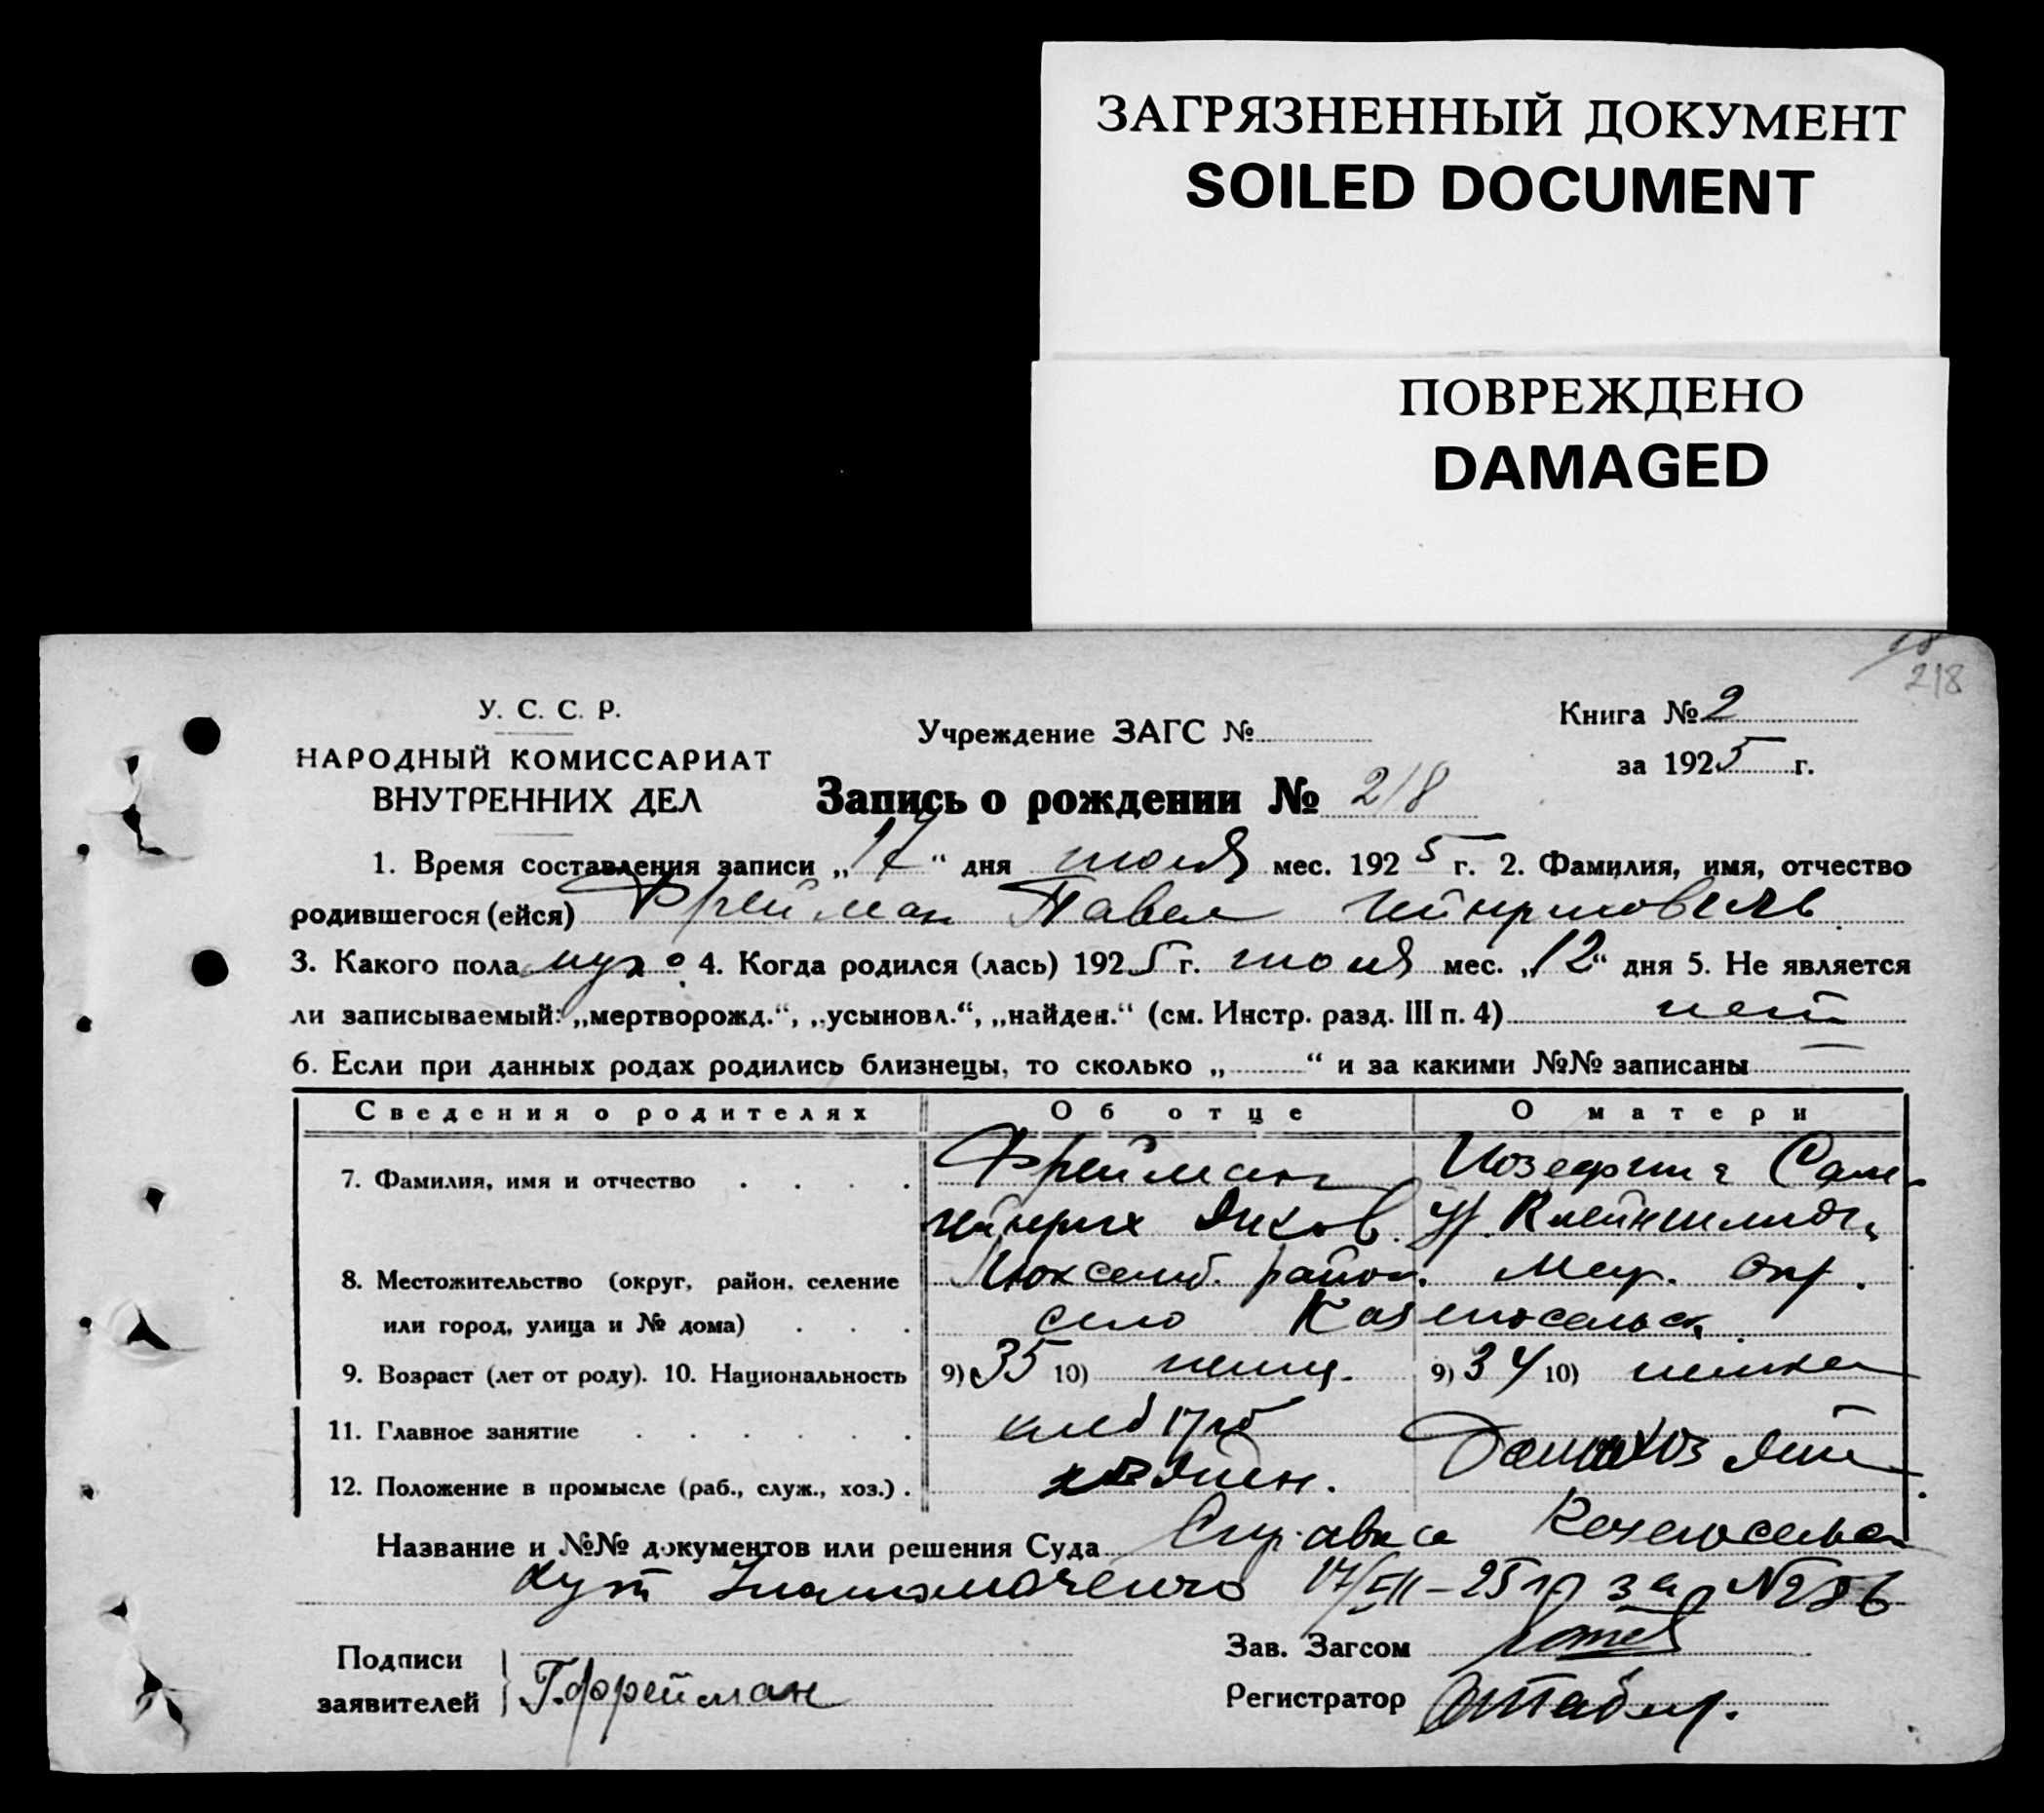 ЗАГРЯЗНЕННЫЙ ДОКУМЕНТ
SOILED DOCUMENT
ПОВРЕЖДЕНО
DAMAGED
218
У. С. С. Р.
НАРОДНЫЙ КОМИССАРИАТ
ВНУТРЕННИХ ДЕЛ
Учреждение ЗАГС №
Книга № 2
за 1925 г.
Запись о рождении № 218
1. Время составления записи „17“ дня июля мес. 1925 г. 2. Фамилия, имя, отчество
родившегося (ейся) Фрейман Павел Гейнрихович
3. Какого пола муж. 4. Когда родился (лась) 1925 г. июля мес. „12“ дня 5. Не является
ли записываемый: „мертворожд.“, „усыновл.“, „найден.“ (см. Инстр. разд. III п. 4) нет
6. Если при данных родах родились близнецы, то сколько „ “ и за какими №№ записаны
Сведения о родителях Об отце О матери
7. Фамилия, имя и отчество Фрейман Иозефина Сам-
Гейнрих Яков. ур. Клейншмидт
8. Местожительство (округ, район, селение район. Мел. окр.
или город, улица и № дома) село
9. Возраст (лет от роду). 10. Национальность 9) 35 10) немец. 9) 34 10) немка
11. Главное занятие хлебороб Домохозяйк
12. Положение в промысле (раб., служ., хоз.) хозяин.
Название и №№ документов или решения Суда Справка
17/VII-25 г за №
Подписи
заявителей Г. Фрейман
Зав. Загсом
Регистратор